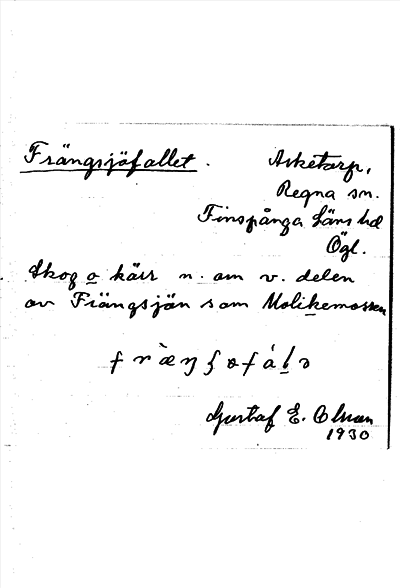 Frängsjöfallet. Asketorp,
Regna sn.
Finspånga läns hd
Ögl.
Skog o kärr n. om v. delen
av Frängsjön som Molikemossen
Gustaf E. Olsson
1930